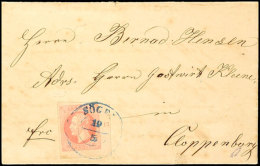 Herrn Bernad Hensen
Adrs. Herrn Gastwirt Kleine
in
fro
Cloppenburg
SÖGEL
19